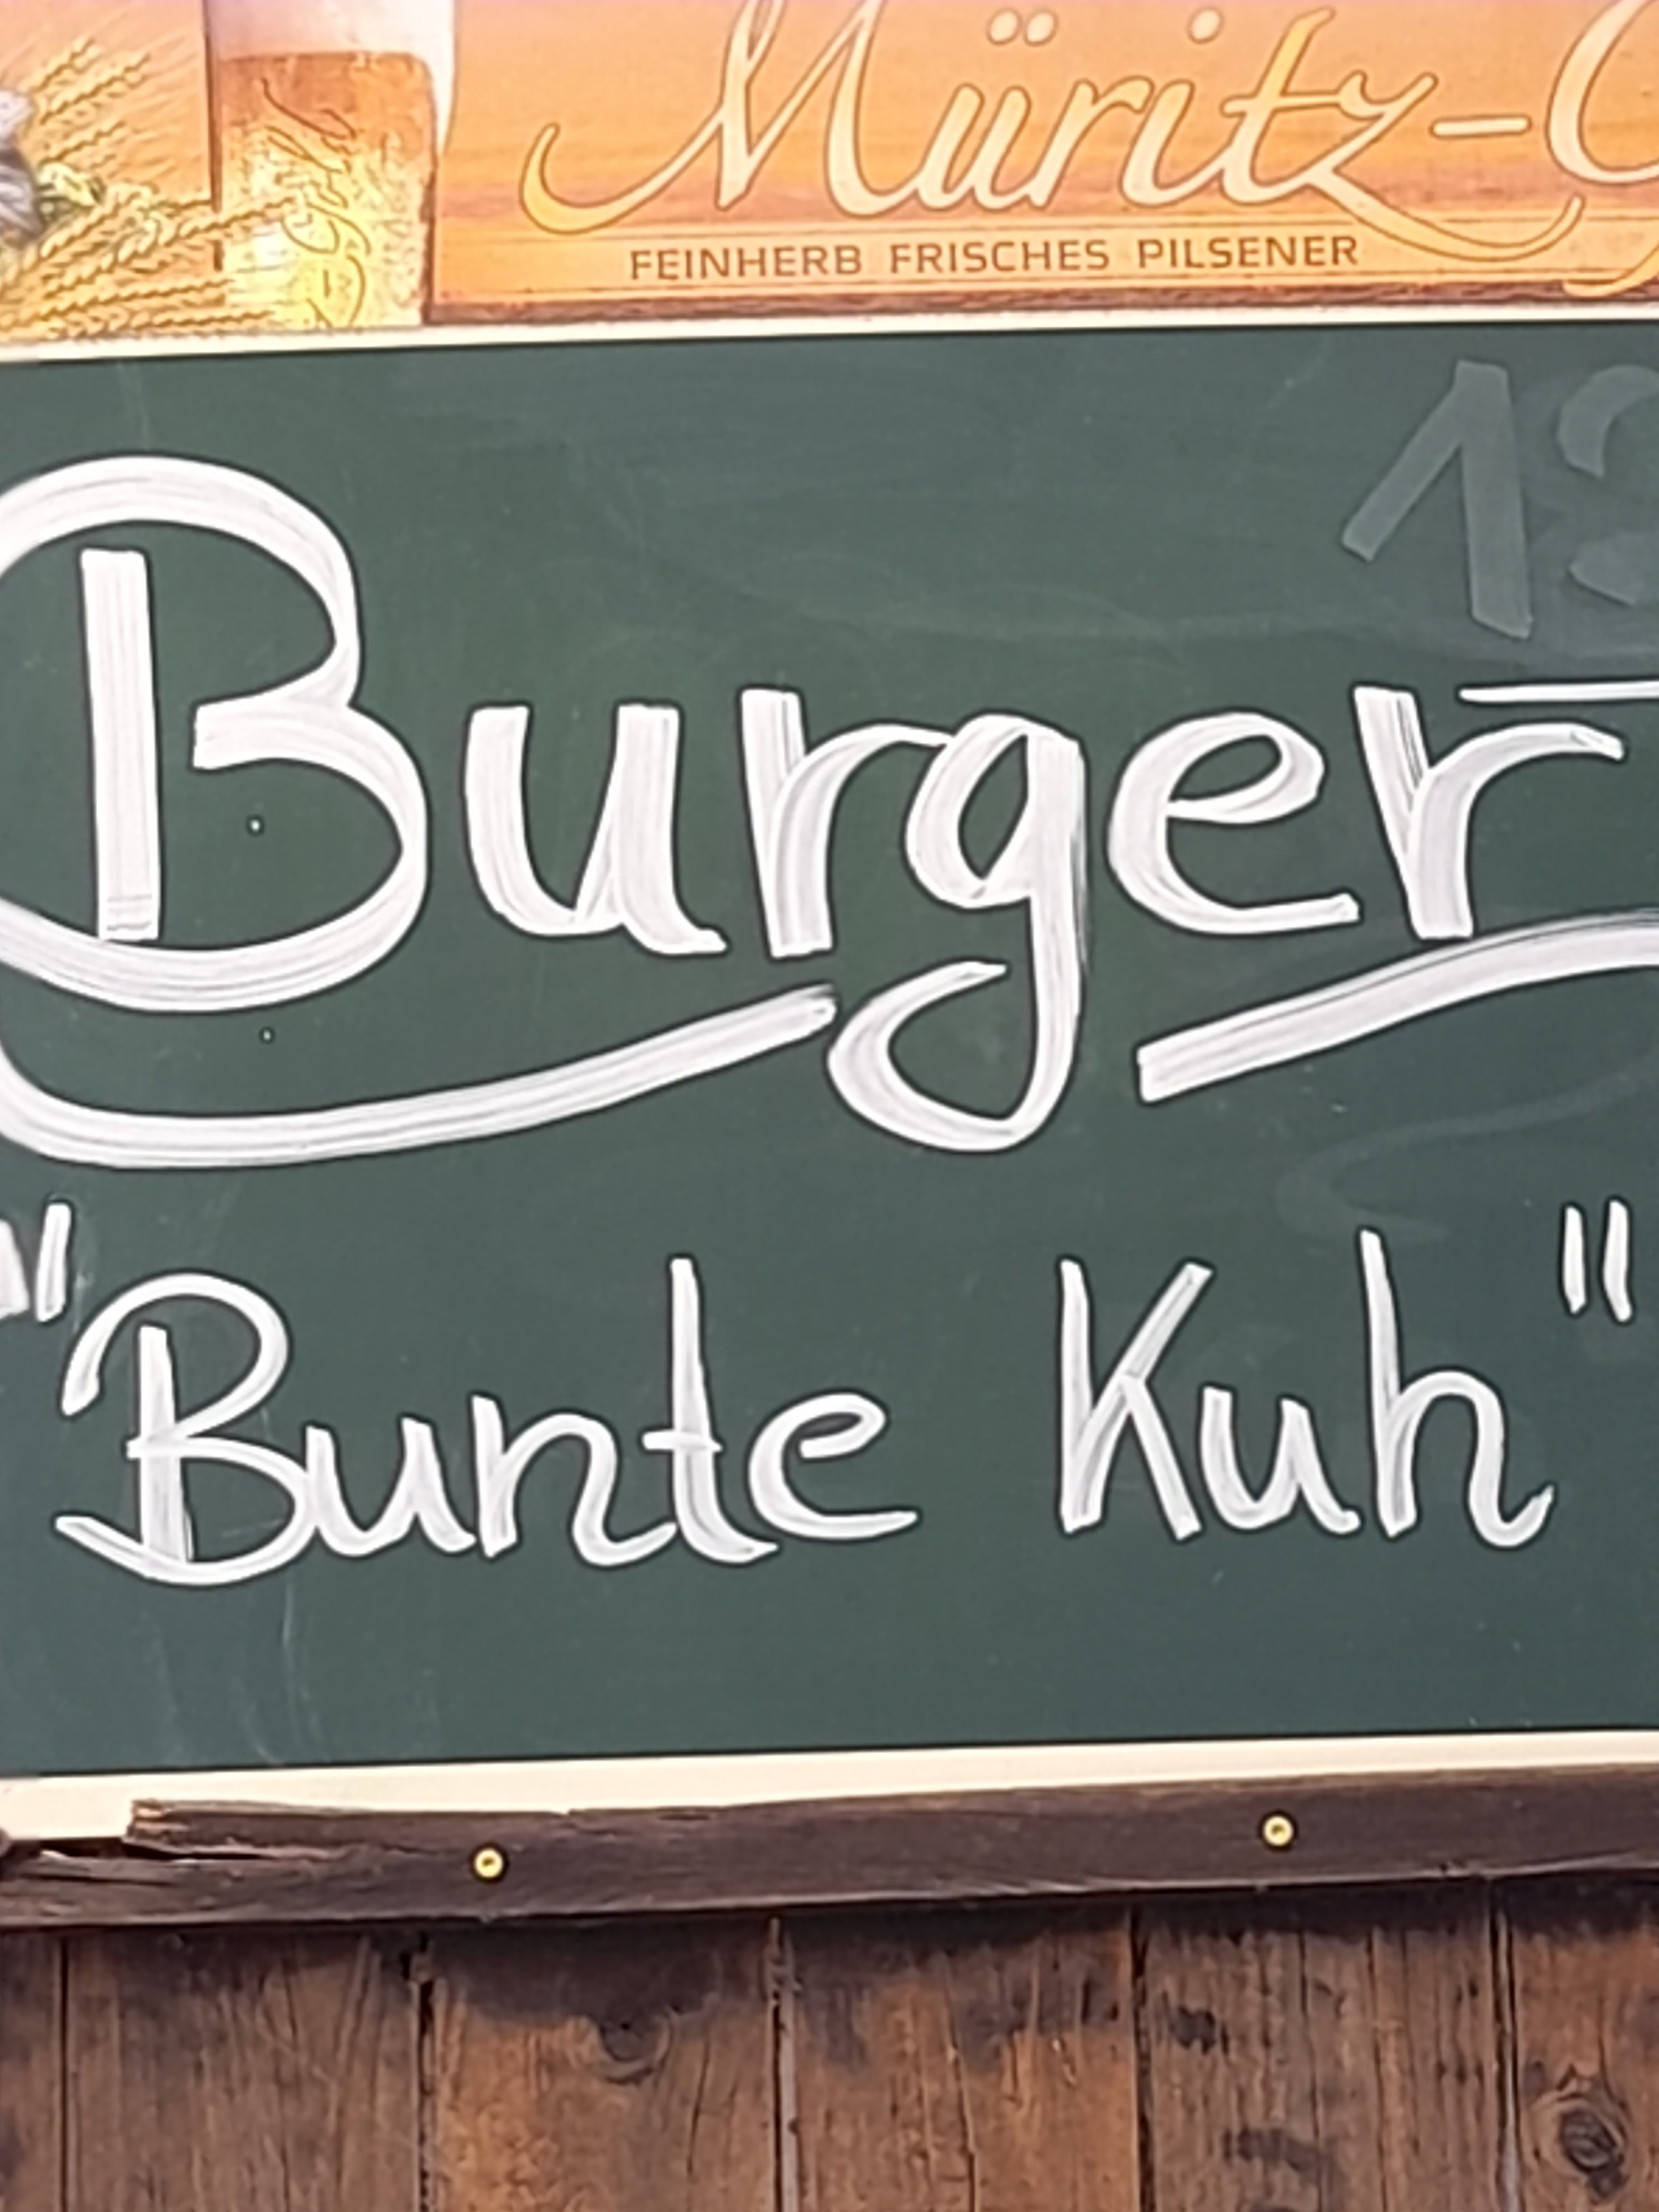 Müritz-
FEINHERB FRISCHES PILSENER
Burger
"Bunte Kuh"